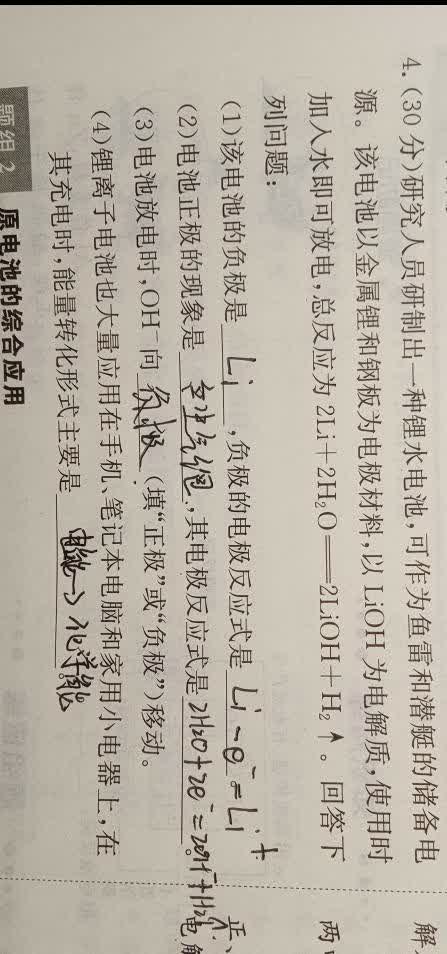 4.(30分)研究人员研制出一种锂水电池,可作为鱼雷和潜艇的储备电
源。该电池以金属锂和钢板为电极材料,以LiOH为电解质,使用时
加入水即可放电,总反应为2Li+2H₂O══2LiOH+H₂↑。回答下
列问题:
(1)该电池的负极是 Li ,负极的电极反应式是 Li-e⁻=Li⁺
(2)电池正极的现象是 产生气泡 ,其电极反应式是 2H₂O+2e⁻=2OH⁻+H₂↑。
(3)电池放电时,OH⁻向 负极 (填“正极”或“负极”)移动。
(4)锂离子电池也大量应用在手机、笔记本电脑和家用小电器上,在
其充电时,能量转化形式主要是 电能→化学能
题组2 原电池的综合应用
解
两
正、
电解